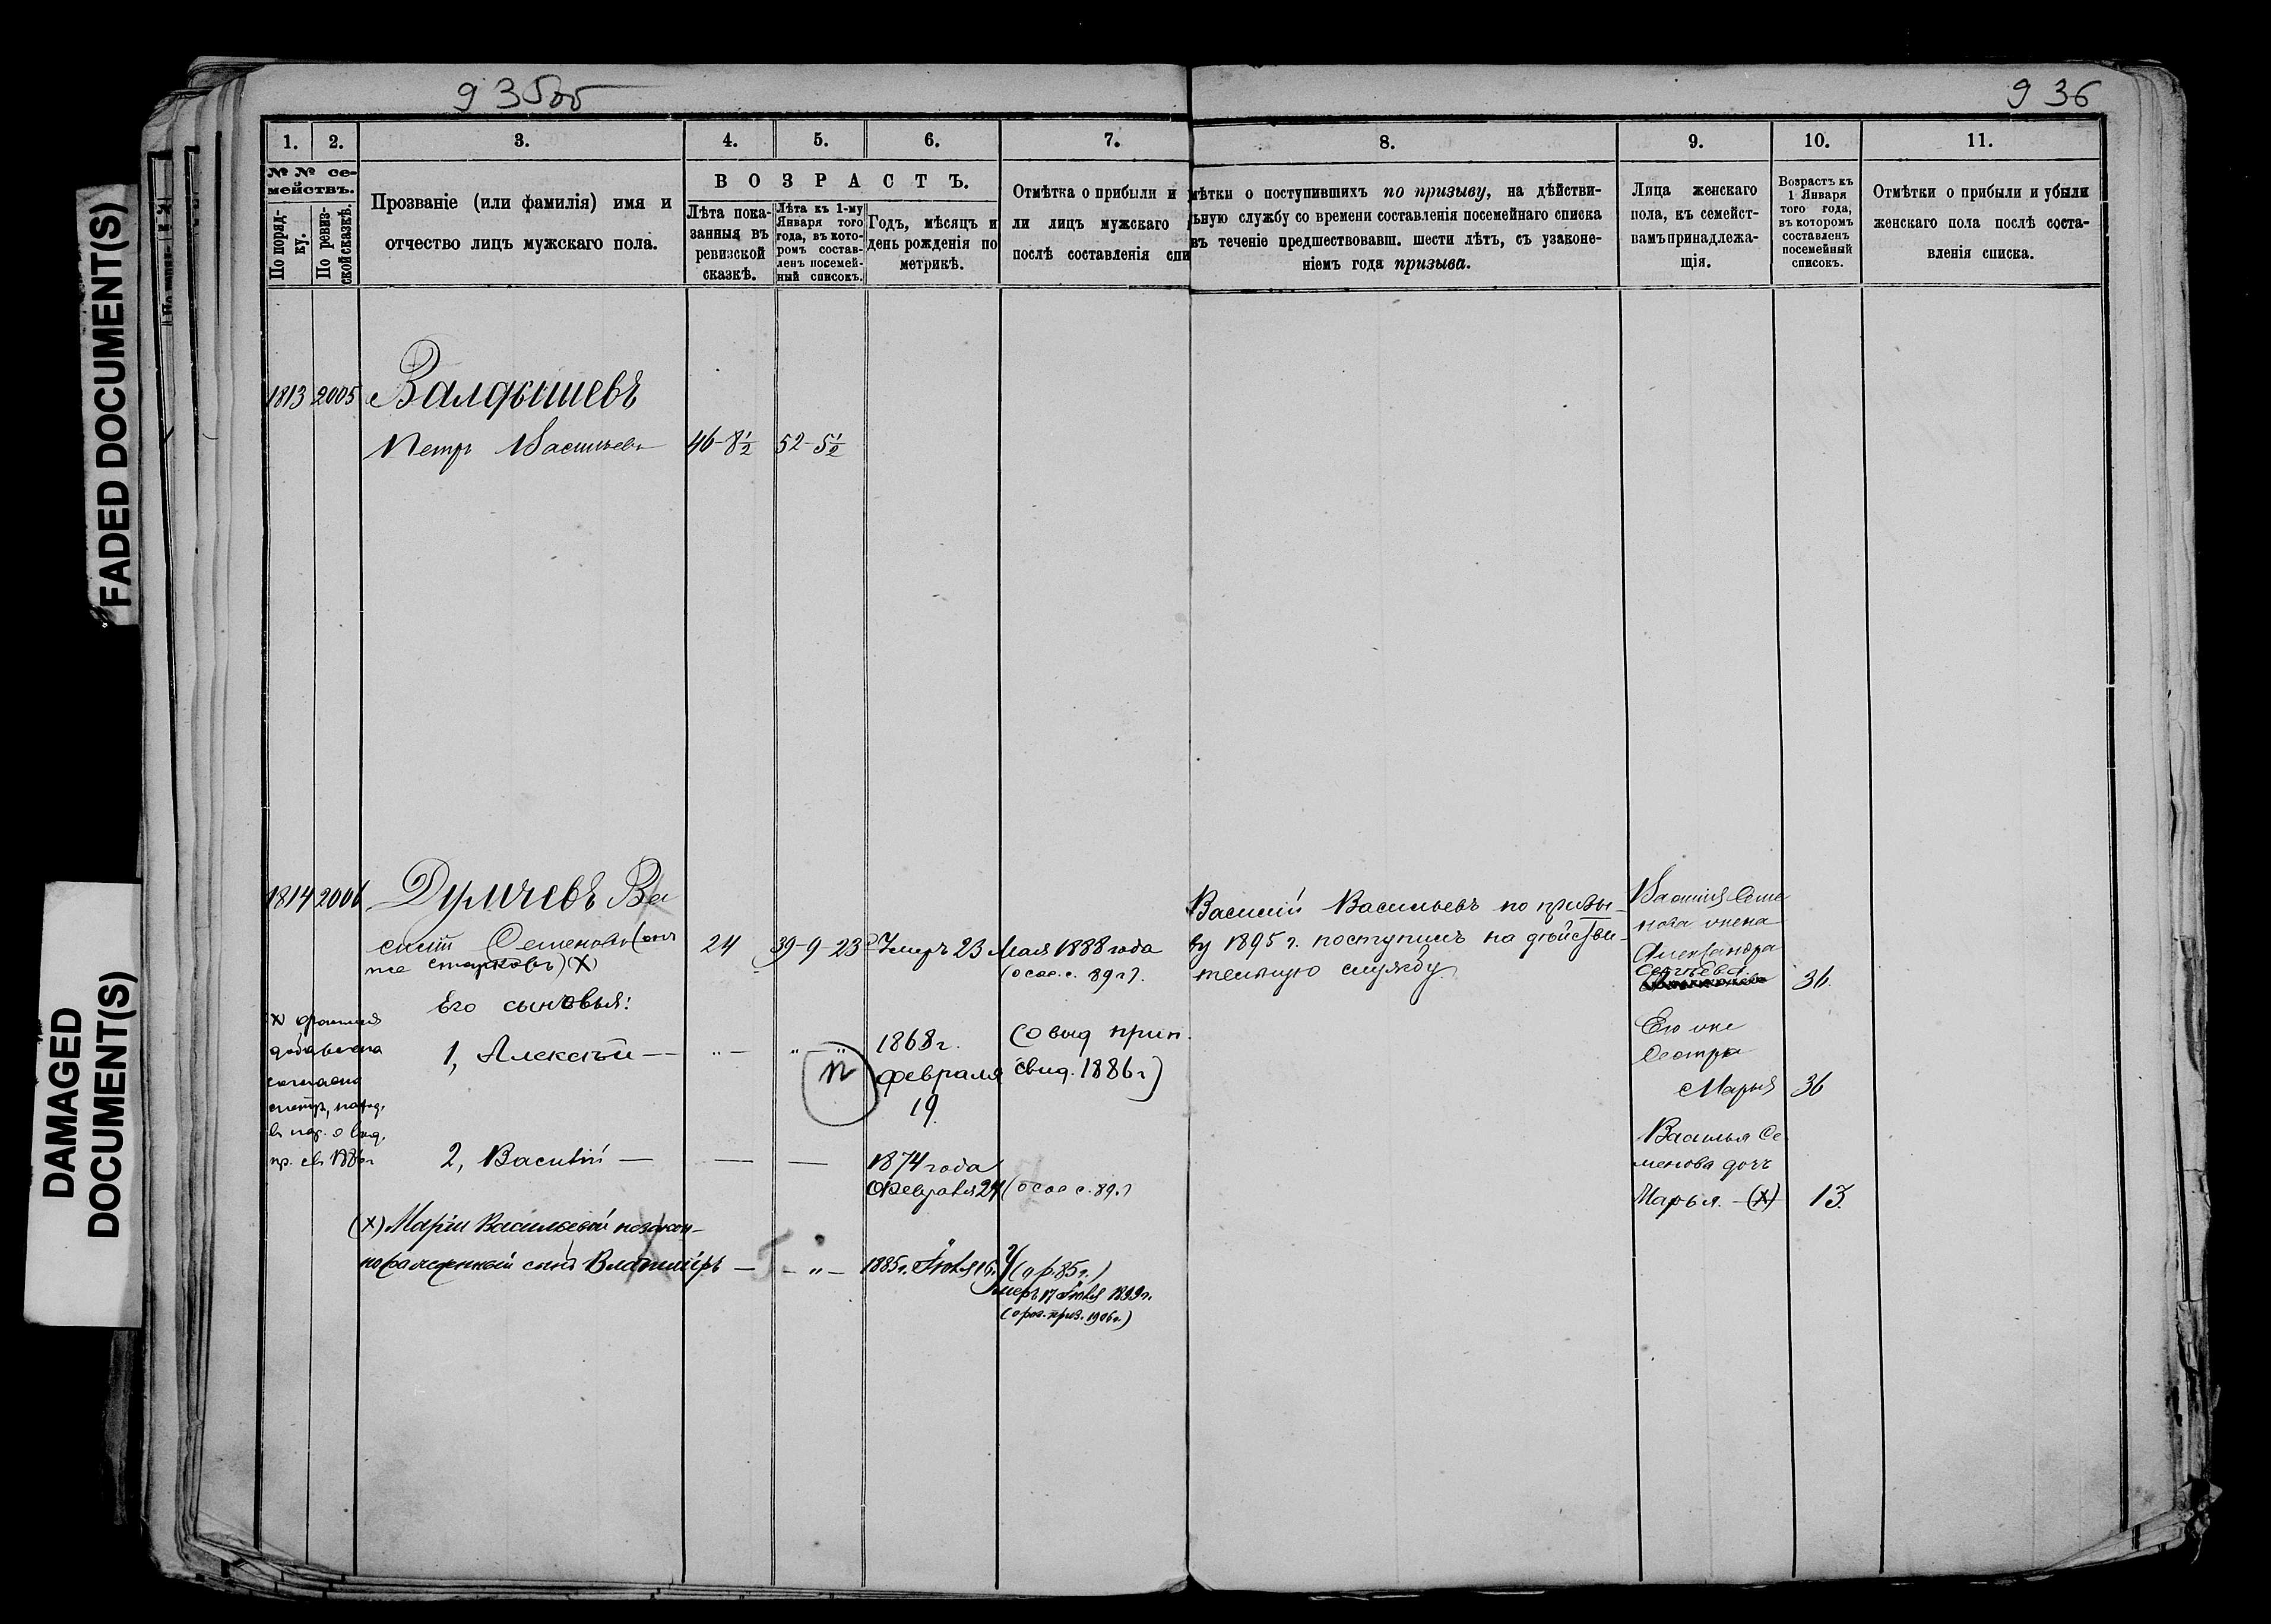 935об
936
FADED DOCUMENT(S)
DAMAGED
DOCUMENT(S)
1.
2.
3.
4.
5.
6.
7.
№ № се-
мействъ.
По поряд-
ку.
По ревиз-
ской сказкѣ.
Прозваніе (или фамилія) имя и
отчество лицъ мужскаго пола.
ВОЗРАСТЪ.
Лѣта пока-
занныя въ
ревизской
сказкѣ.
Лѣта къ 1-му
Января того
года, въ кото-
ромъ состав-
ленъ посемей-
ный списокъ.
Годъ, мѣсяцъ и
день рожденія по
метрикѣ.
Отмѣтка о прибыли и
ли лицъ мужскаго
послѣ составленія спи
8.
9.
10.
11.
мѣтки о поступившихъ по призыву, на дѣйстви-
ьную службу со времени составленія посемейнаго списка
въ теченіе предшествовавш. шести лѣтъ, съ узаконе-
ніемъ года призыва.
Лица женскаго
пола, къ семейст-
вамъ принадлежа-
щія.
Возрастъ къ
1 Января
того года,
въ которомъ
составленъ
посемейный
списокъ.
Отмѣтки о прибыли и убыли
женскаго пола послѣ соста-
вленія списка.
1813 2005 Валдышевъ
Петръ Васильевъ 46-8½ 52-5½
1814 2006 Ва
силій Семеновъ (онъ
же Старковъ) (X) 24 39-9-23 Умеръ 23 Мая 1888 года
89 г.).
Его сыновья:
1, Алексѣй 1868 г.
февраля
19.
прип.
свид. 1886 г)
2, Василій — — — 1874 года
Февраля 24 89.)
(X) Маріи Васильевой незакон-
норожденный сынъ Владиміръ — — „ — 1885 г. Іюля 16. (о р. 85 г.)
Умеръ 17 Іюля 1899 г.
1906 г.)
X фамилія
добавлена
согласно
1886 г
Василій Васильевъ по призы-
ву 1895 г. поступилъ на дѣйстви-
тельную службу
Василія Семе
нова жена
Александра
Сергѣева 36.
Его же
Сестра
Марья 36
Василья Се
менова дочь
Марья. — (X) 13.